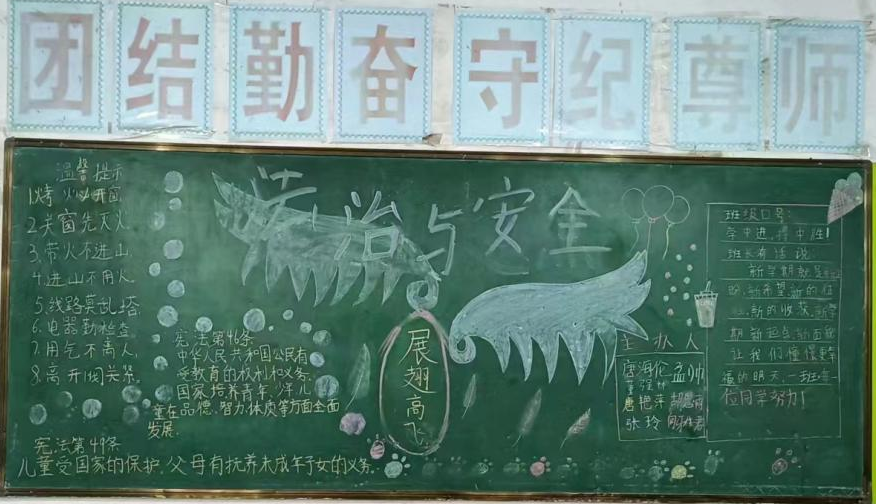 团结勤奋守纪尊师
法治与安全
温馨提示
1.烤火必开窗
2.关窗先灭火
3.带火不进山
4.进山不用火
5.线路莫乱搭
6.电器勤检查
7.用气不离人
8.离开阀关紧
宪法第46条
中华人民共和国公民有
受教育的权利和义务.
国家培养青年、少年、儿
童在品德、智力、体质等方面全面
发展.
宪法第49条
儿童受国家的保护.父母有抚养未成年子女的义务.
展翅高飞
主办人
孟帅
唐艳萍
张玲
班级口号:
学中进,得中胜!
班长有话说:
新学期就是
盼,新希望,新的
新的收获,新学
期新起点,新面貌
让我们憧憬更幸
福的明天,一班每一
位同学努力!